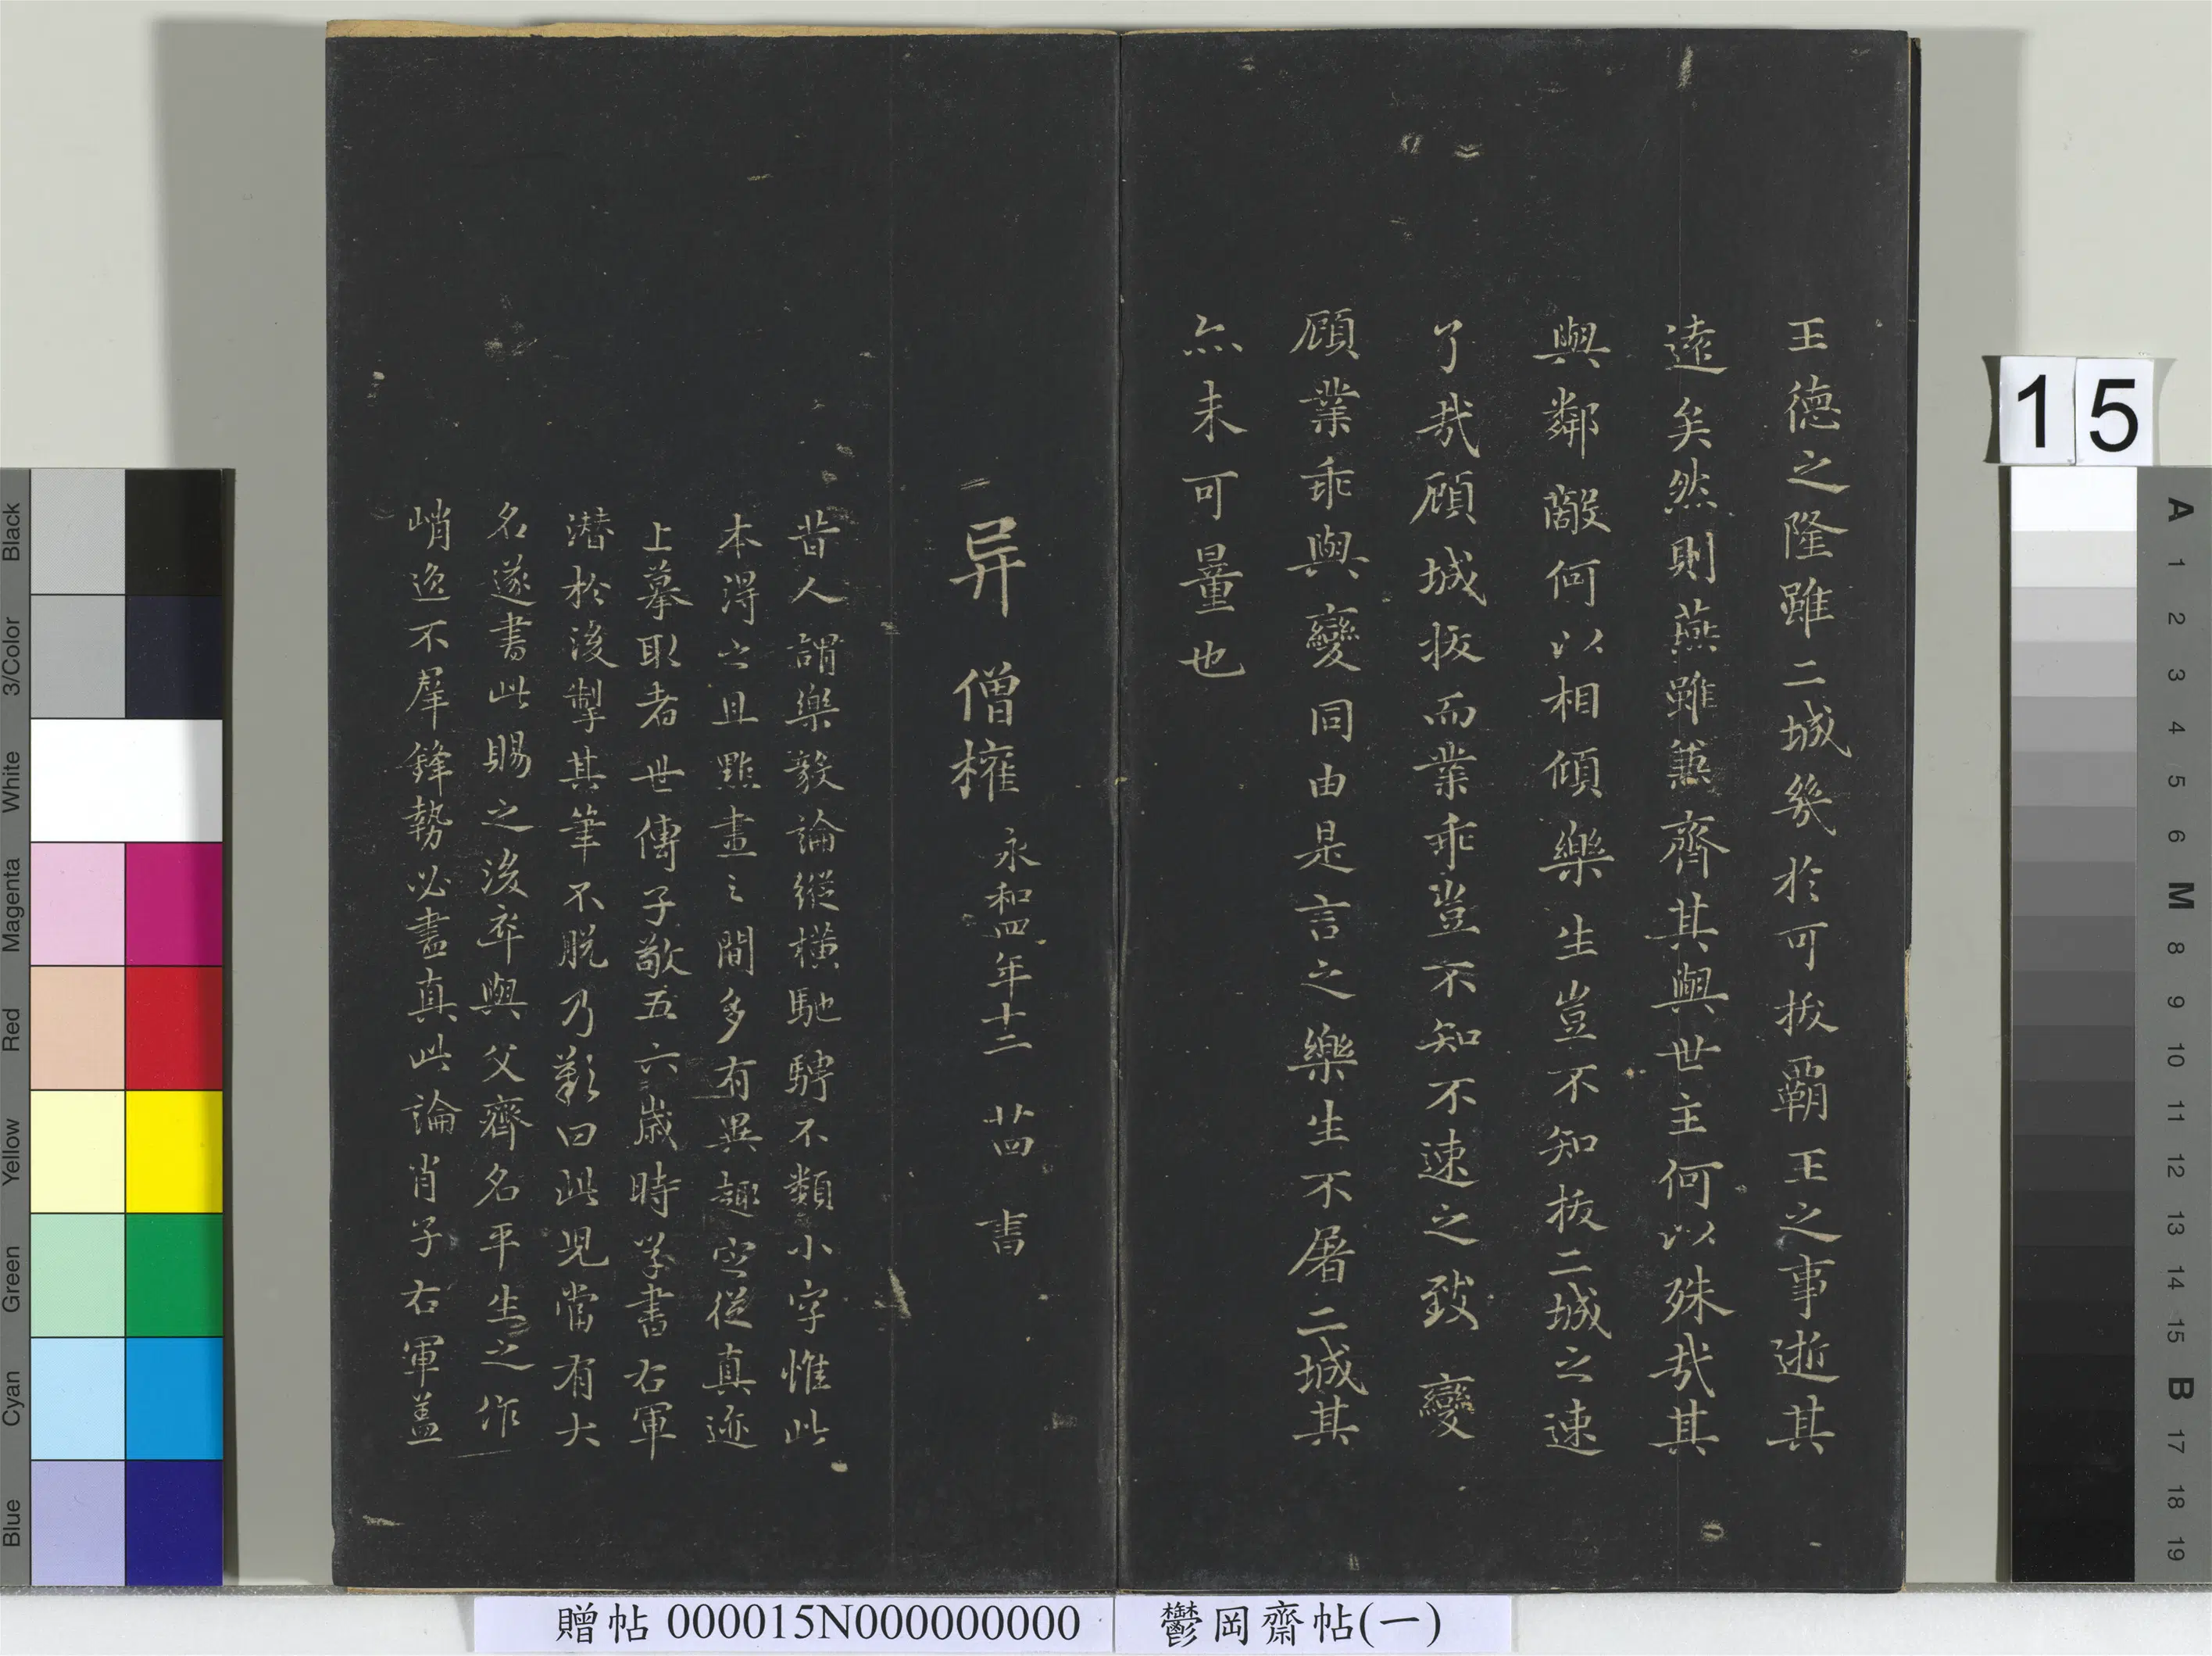 王德之隆雖二城幾於可拔霸王之事逝其
遠矣然則燕雖兼齊其與世主何以殊哉其
與鄰敵何以相傾樂生豈不知拔二城之速
了哉顧城拔而業乖豈不知不速之致變
顧業乖與變同由是言之樂生不屠二城其
亦未可量也
异 僧權
永和四年十二 書
昔人謂樂毅論縱橫馳騁不類小字惟此
本得之且點畫之間多有異趣從真迹
上摹取者世傳子敬五六歲時学書右軍
潛於後掣其筆不脱乃歎曰此児當有大
名遂書此賜之後卒與父齊名平生之作
峭逸不羣鋒勢必盡真此論肖子右軍蓋
贈帖 000015N000000000
鬱岡齋帖(一)
15
Black
3/Color
White
Magenta
Red
Yellow
Green
Cyan
Blue
A
1
2
3
4
5
6
M
8
9
10
11
12
13
14
15
B
17
18
19